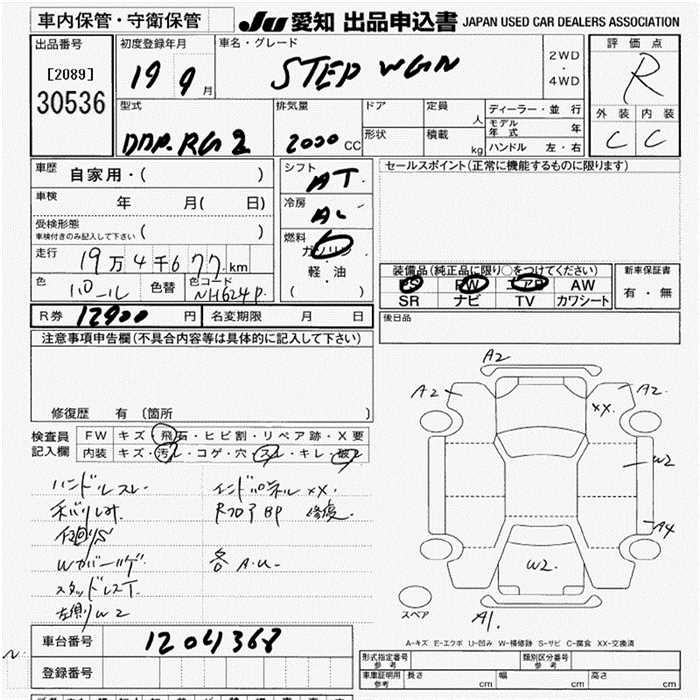 車内保管・守衛保管 Ju 愛知 出品申込書 JAPAN USED CAR DEALERS ASSOCIATION
出品番号 初度登録年月 車名・グレード 評価点
[2089] 19 9 月 STEP WGN 2WD・4WD R
30536
型式 排気量 ドア 定員 人 ディーラー・並行 外装 内装
モデル年式 年
DBA.RG2 2000 CC 形状 積載 kg ハンドル 左・右 C C
車歴 自家用・( ) シフト AT セールスポイント(正常に機能するものに限ります)
車検 年 月( 日) 冷房 AC
受検形態 車検付きのみ記入して下さい ( )
燃料 ガソリン
走行 19万4千677km 軽・油 装備品(純正品に限り○をつけてください) 新車保証書
色 パール 色替 色コード NH624P. ( ) PS PW エアB AW 有・無
SR ナビ TV カワシート
R券 12900 円 名変期限 月 日 後日品
注意事項申告欄(不具合内容等は具体的に記入して下さい)
修復歴 有 (箇所 )
A2
A2 A2.
XX.
W2
A4
W2.
A1.
スペア
検査員記入欄 FW キズ・飛石・ヒビ割・リペア跡・X要
内装 キズ・汚レ・コゲ・穴・スレ・キレ・破レ
ハンドルスレ インドパネルXX.
RフロアBP 修復.
各 A.U-
スタッドレスT.
左側リW2
A-キズ E-エクボ U-凹み W-補修跡 S-サビ C-腐食 XX-交換済
車台番号 1204368
登録番号
形式指定番号 参考 類別区分番号 参考
車庫証明用 参考 長さ cm 幅 cm 高さ cm